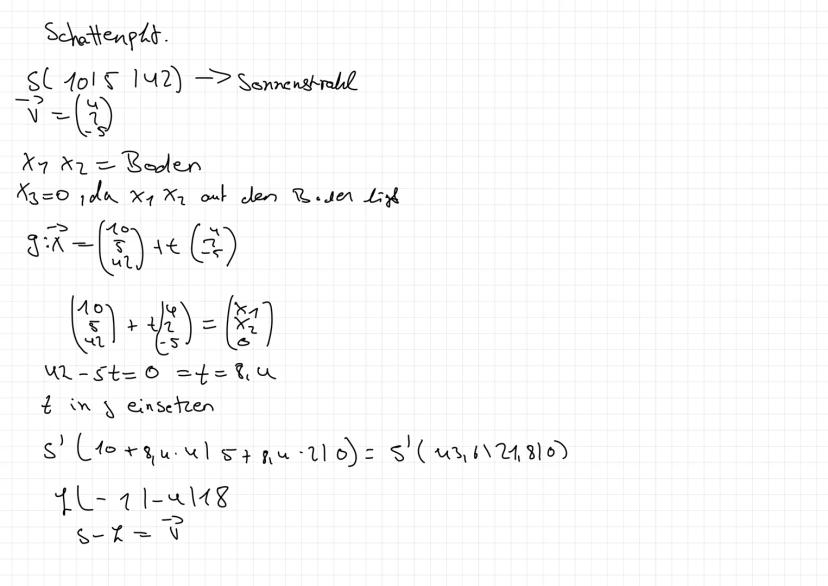 Schattenpkt.
S( 10|5 |42) → Sonnenstrahl
v⃗ = (4 2 -5)
x1 x2 = Boden
x3=0, da x1 x2 auf den Boden liegt
g: x⃗ = (10 5 42) + t (4 2 -5)
(10 5 42) + t (4 2 -5) = (x1 x2 0)
42 - 5t = 0 = t = 8,4
t in g einsetzen
S' (10 + 8,4 · 4 | 5 + 8,4 · 2 | 0) = S' (43,6|21,8|0)
(-1|-4|18
v⃗